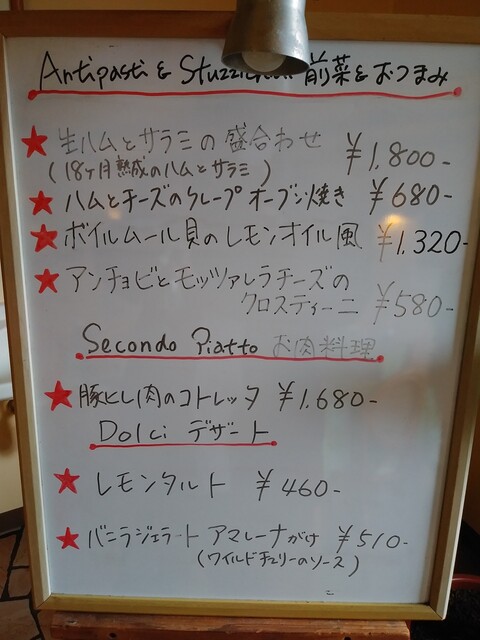 Antipasti & 前菜&おつまみ
★ 生ハムとサラミの盛合わせ ¥1,800-
(18ヶ月熟成のハムとサラミ)
★ ハムとチーズのクレープ オーブン焼き ¥680-
★ ボイルムール貝のレモンオイル風 ¥1,320-
★ アンチョビとモッツァレラチーズの
クロスティーニ ¥580-
Secondo Piatto お肉料理
★ 豚ヒレ肉のコトレッタ ¥1,680-
Dolci デザート
★ レモンタルト ¥460-
★ バニラジェラート アマレーナがけ ¥510-
(ワイルドチェリーのソース)